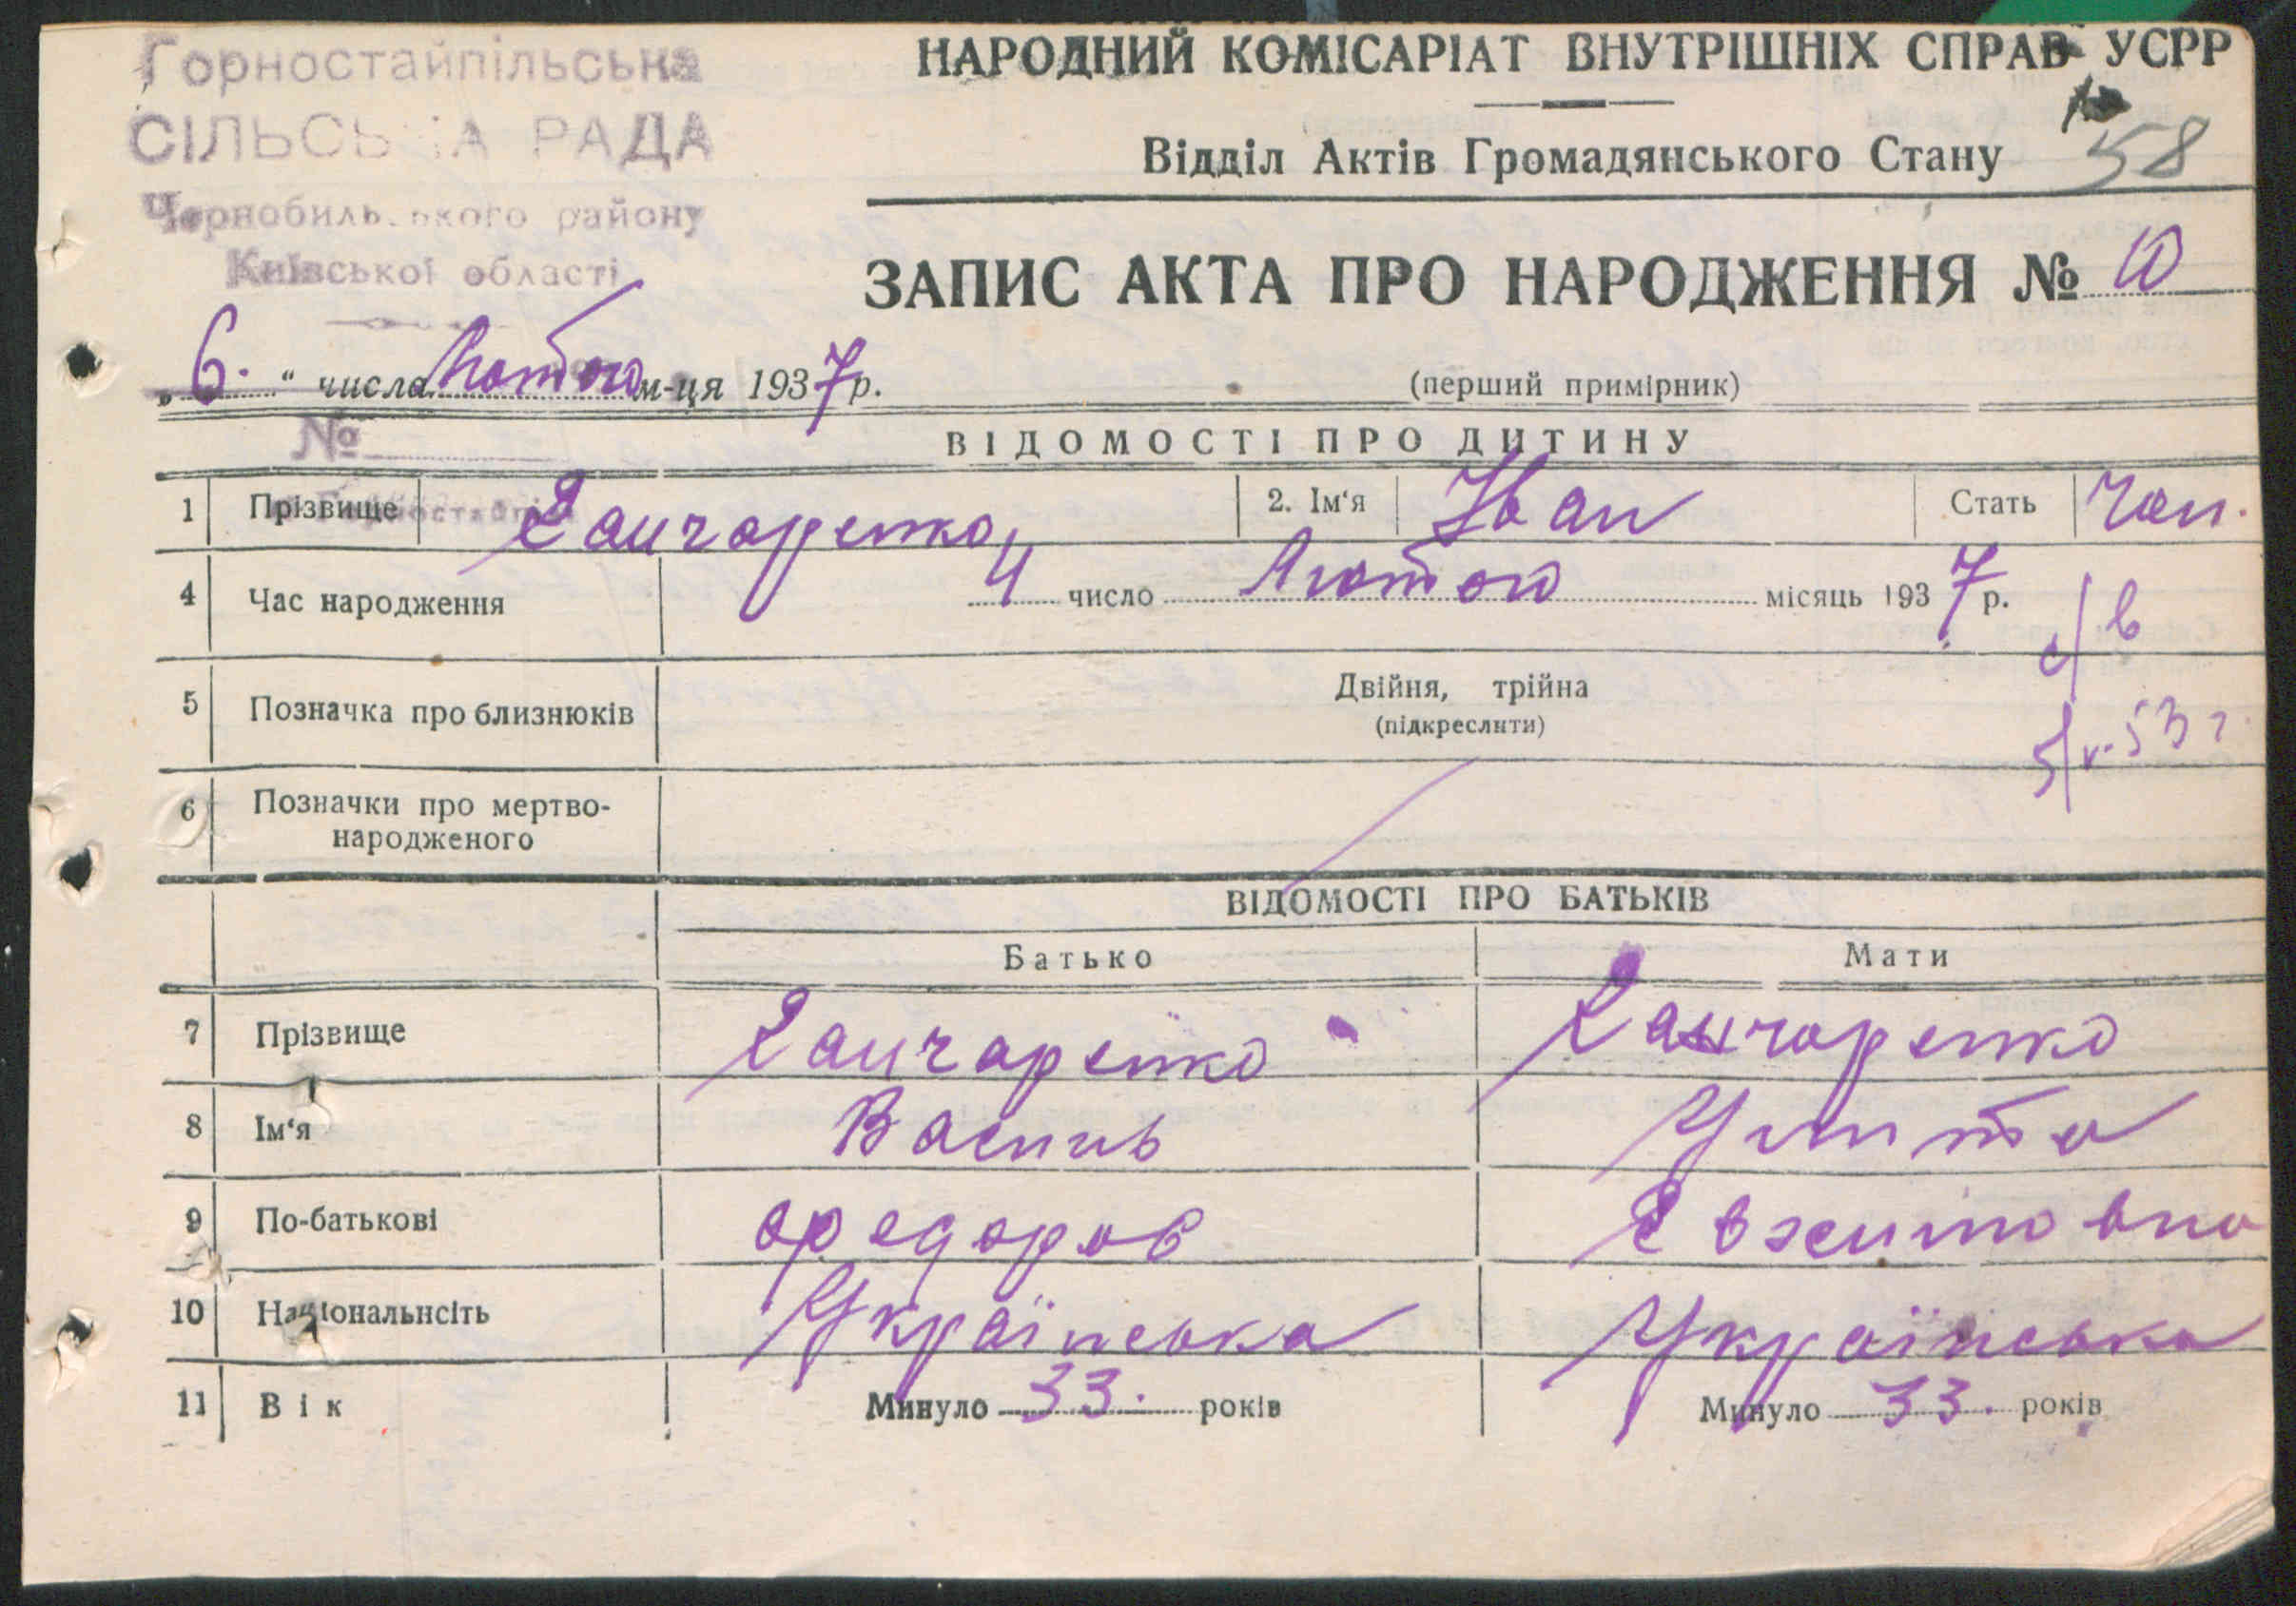 Горностайпільська
СІЛЬСЬКА РАДА
Чорнобильського району
Київської області
НАРОДНИЙ КОМІСАРІАТ ВНУТРІШНІХ СПРАВ УСРР
Відділ Актів Громадянського Стану
58
ЗАПИС АКТА ПРО НАРОДЖЕННЯ № 10
„ 6. “ числа Лютого м-ця 1937 р.
(перший примірник)
№
ВІДОМОСТІ ПРО ДИТИНУ
1 Прізвище Ганчаренко 2. Ім‘я Іван Стать Чол.
4 Час народження 4 число Лютого місяць 1937 р.
5 Позначка про близнюків Двійня, трійна
(підкреслити)
6 Позначки про мертво-
народженого
ВІДОМОСТІ ПРО БАТЬКІВ
Батько Мати
7 Прізвище Ганчаренко Ганчаренко
8 Ім‘я Василь Улита
9 По-батькові Федоров
10 Національнсіть Українська Українська
11 Вік Минуло 33. років Минуло 33. років